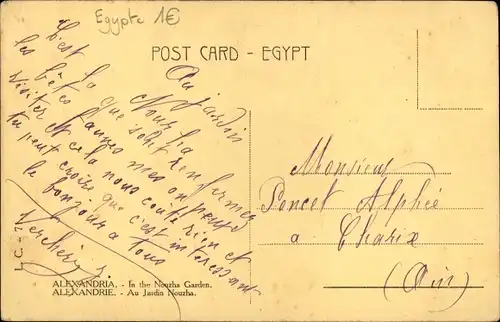 Egypte 1€
POST CARD - EGYPT
Au jardin
Nouzha
C'est la que sont renfermés
les bêtes fauves mes on peu
visiter et cela nous coute rien et
tu peut croire que c'est intéressant
le bonjour a tous
Monsieur
Poncet Alphée
a Charix
(Ain)
L.C. - 7
ALEXANDRIA. - In the Nouzha Garden.
ALEXANDRIE. - Au Jardin Nouzha.